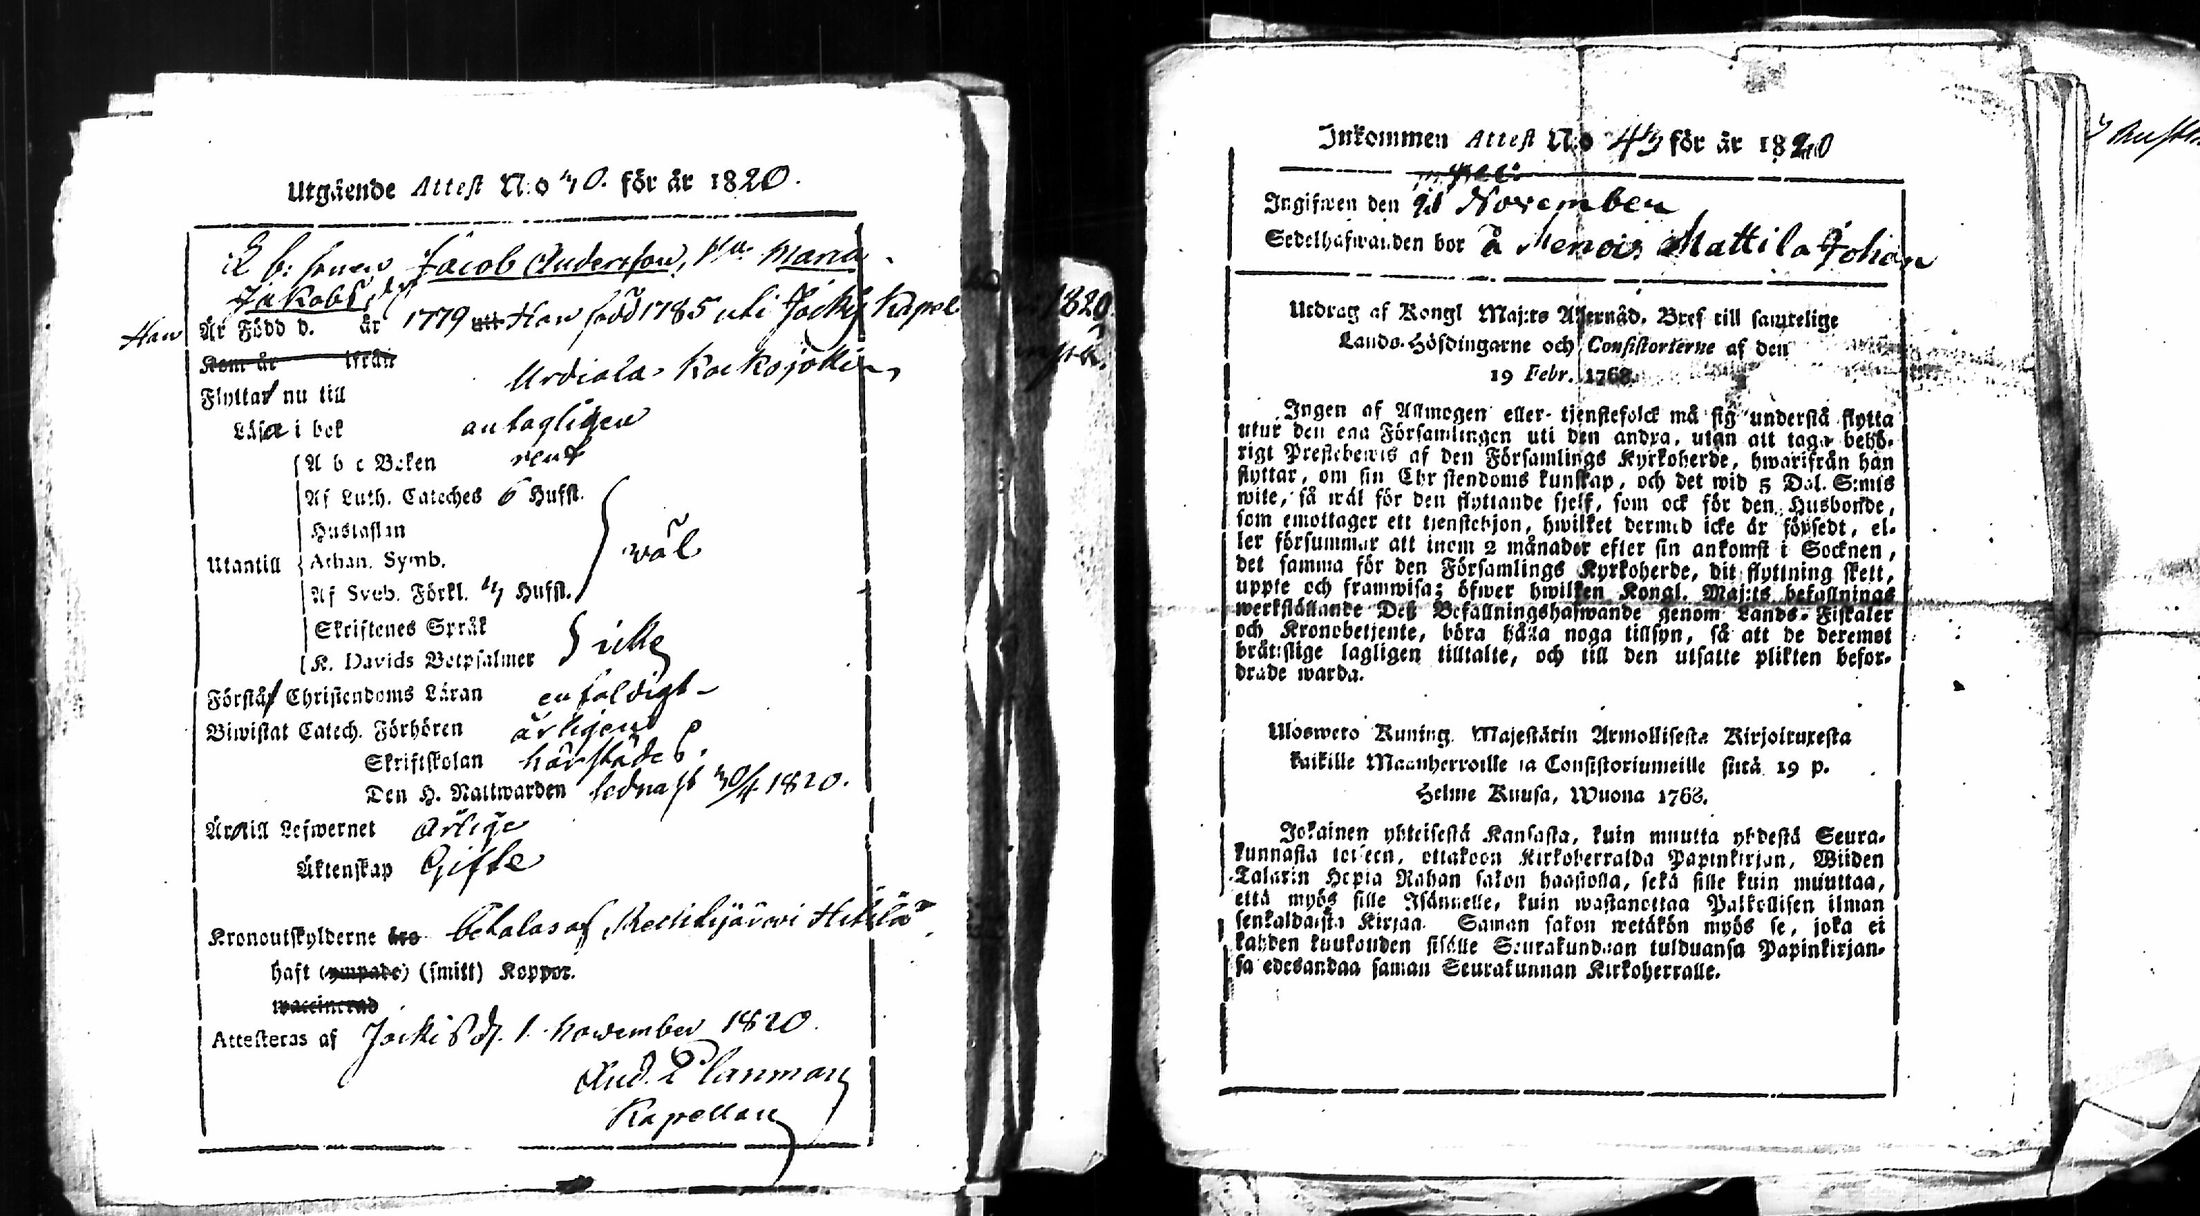 Utgående Attest N:o 40. för år 1820.
Jacob Andersson, Maria
Jakobs dr
Han Är Född d. år 1779 Han född 1785 uti Jockis Kapel
Kom år ifrån
Flyttar nu till Urdiala Kaekojokki
Läsa i bok antagligen
A b c Boken rent
Af Luth. Cateches 6 Hufst.
Hustaflan
Utantill Athan. Symb. wäl
Af Sveb. Förkl. 4 Hufst.
Skriftenes Språk
K. Davids Botpsalmer icke
Förstår Christendoms Läran enfaldigt
Biwistat Catech. Förhören årligen
Skriftskolan härstädes.
Den H. Nattwarden sednast 30/4 1820.
Är till Lefwernet ärlige
Äktenskap Gifte
Kronoutskylderne betalas af
haft (ympade) (smitt) Koppor.
waccinerad
Attesteras af Jockis d. 1 November 1820.
And. Planman
Kapellan
1820
Inkommen Attest N:o 43 för år 1820
Ingifwen den November
Sedelhafwanden bor å Menois Mattila Johan
Utdrag af Kongl Maj:ts Allernåd. Bref till samtelige
Lands-Höfdingarne och Consistorierne af den
19 Febr. 1768.
Ingen af Allmogen eller tjenstefolck må sig understå flytta
utur den ena Församlingen uti den andra, utan att taga behö-
rigt Prestebewis af den Församlings Kyrkoherde, hwarifrån han
flyttar, om sin Christendoms kunskap, och det wid 5 Dal. S:mts
wite, så wäl för den flyttande sjelf, som ock för den Husbonde,
som emottager ett tjenstehjon, hwilket dermed icke är försedt, el-
ler försummar att inom 2 månader efter sin ankomst i Socknen,
det samma för den Församlings Kyrkoherde, dit flyttning skett,
uppte och framwisa; öfwer hwilken Kongl. Maj:ts befallnings
werkställande Deß Befallningshafwande genom Lands-Fiskaler
och Kronobetjente, böra hålla noga tillsyn, så att de deremot
brätslige lagligen tilltalte, och till den utsatte plikten befor-
drade warda.
Uloswero Kuning. Majestätin Armollisesta Kirjoituxesta
kaikille Maanherroille ja Consistoriumeille siitä 19 p.
Helme Kuusa, Wuona 1768.
Jokainen yhteisestä Kansasta, kuin muutta yhdestä Seura-
kunnasta toiseen, ottakoon Kirkoherralda Papinkirjan, Wiiden
Talarin Hopia Rahan sakon haastolla, sekä sille kuin muuttaa,
että myös sille Isännelle, kuin wastanottaa Palkollisen ilman
senkaldaista Kirjaa. Saman sakon wetäkön myös se, joka ei
kahden kuukauden sisälle Seurakundaan tulduansa Papinkirjan-
sa edesandaa saman Seurakunnan Kirkoherralle.